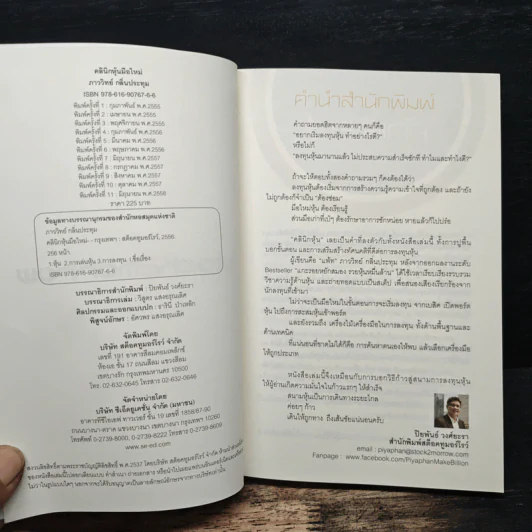 คลินิกหุ้นมือใหม่
ภาววิทย์ กลิ่นประทุม
ISBN 978-616-90767-6-6
พิมพ์ครั้งที่ 1 : กุมภาพันธ์ พ.ศ.2555
พิมพ์ครั้งที่ 2 : เมษายน พ.ศ.2555
พิมพ์ครั้งที่ 3 : พฤศจิกายน พ.ศ.2555
พิมพ์ครั้งที่ 4 : กุมภาพันธ์ พ.ศ.2556
พิมพ์ครั้งที่ 5 : มีนาคม พ.ศ.2556
พิมพ์ครั้งที่ 6 : พฤษภาคม พ.ศ.2556
พิมพ์ครั้งที่ 7 : มิถุนายน พ.ศ.2557
พิมพ์ครั้งที่ 8 : กรกฎาคม พ.ศ.2557
พิมพ์ครั้งที่ 9 : สิงหาคม พ.ศ.2557
พิมพ์ครั้งที่ 10 : ตุลาคม พ.ศ.2557
พิมพ์ครั้งที่ 11 : มิถุนายน พ.ศ.2558
ราคา 225 บาท
ข้อมูลทางบรรณานุกรมของสำนักหอสมุดแห่งชาติ
ภาววิทย์ กลิ่นประทุม
คลินิกหุ้นมือใหม่.-- กรุงเทพฯ : สต็อคทูมอร์โรว์, 2556.
256 หน้า
1.หุ้น 2.การเล่นหุ้น 3.การลงทุน I.ชื่อเรื่อง
ISBN 978-616-90767-6-6
บรรณาธิการสำนักพิมพ์ : ปิยพันธ์ วงศ์ยะรา
บรรณาธิการเล่ม : วิสูตร แสงอรุณเลิศ
ศิลปกรรมและออกแบบปก : ธารินี
พิสูจน์อักษร : อัศวพร แสงอรุณเลิศ
จัดพิมพ์โดย
บริษัท สต็อคทูมอร์โรว์ จำกัด
เลขที่ 191 อาคารสีลมคอมเพล็กซ์
ห้องเอ ชั้น 17 ถนนสีลม แขวงสีลม
เขตบางรัก กรุงเทพมหานคร 10500
โทร. 02 632-0645 โทรสาร 02 632-0646
จัดจำหน่ายโดย
บริษัท ซีเอ็ดยูเคชั่น จำกัด (มหาชน)
อาคารทีซีไอเอฟ ทาวเวอร์ ชั้น 19 เลขที่ 1858/87-90
ถนนบางนา-ตราด แขวงบางนา เขตบางนา กรุงเทพฯ 10260
โทรศัพท์ 0-2739-8000, 0-2739-8222 โทรสาร 0-2739-8609
www.se-ed.com
สงวนลิขสิทธิ์ตามพระราชบัญญัติลิขสิทธิ์ พ.ศ.2537 โดยบริษัท สต็อคทูมอร์โรว์ จำกัด
คำนำสำนักพิมพ์
คำถามยอดฮิตจากหลายๆ คนก็คือ
"อยากเริ่มลงทุนหุ้น ทำอย่างไรดี?"
หรือไม่ก็
"ลงทุนหุ้นมานานแล้ว ไม่ประสบความสำเร็จซักที ทำไมและทำไงดี?"
ถ้าจะให้ตอบทั้งสองคำถามรวมๆ ก็คงต้องได้ว่า
ลงทุนหุ้นต้องเริ่มจากการสร้างความรู้ความเข้าใจที่ถูกต้อง และถ้ายัง
ไม่ถูกต้องก็จำเป็น "ต้องซ่อม"
มือใหม่/หุ้น ต้องเรียนรู้
ส่วนมือเก่าที่เป๋ๆ ต้องรักษาอาการซักหน่อย หายแล้วก็ไปปร๋อ
"คลินิกหุ้น" เลยเป็นคำที่ลงตัวกับทั้งหนังสือเล่มนี้ ทั้งการปูพื้น
บอกขั้นตอน และการเสริมสร้างทัศนคติที่ดีต่อการลงทุนหุ้น
ผู้เขียนคือ "แพ้ท" ภาววิทย์ กลิ่นประทุม หลังจากออกผลงานระดับ
Bestseller "แกะรอยหยักสมอง รวยหุ้นหมื่นล้าน" ได้ใช้เวลาเรียบเรียงรวบรวม
วิชาความรู้ด้านหุ้น และถ่ายทอดแบบเป็นสเต็ป เพื่อสนองเสียงเรียกร้องจาก
นักลงทุนที่เข้ามา
ไม่ว่าจะเป็นมือใหม่ในขั้นตอนการจะเริ่มลงทุน จากเบสิค เปิดพอร์ต
หุ้น ไปถึงการสะสมหุ้นเข้าพอร์ต
และยังรวมถึง เครื่องไม้เครื่องมือในการลงทุน ทั้งด้านพื้นฐานและ
ด้านเทคนิค
ที่แน่นอนที่ขาดไม่ได้ก็คือ การค้นหาตนเองให้พบ แล้วเลือกเครื่องมือ
ให้ถูกประเภท
หนังสือเล่มนี้จึงเหมือนกับการบอกวิธีก้าวสู่สนามการลงทุนหุ้น
ให้ผู้อ่านเกิดความมั่นใจในก้าวแรกๆ ให้สำเร็จ
สนามหุ้นเป็นการเดินทางระยะไกล
ค่อยๆ ก้าว
เดินให้ถูกทาง ถึงเส้นชัยแน่นอนครับ
ปิยพันธ์ วงศ์ยะรา
สำนักพิมพ์สต็อคทูมอร์โรว์
email : piyaphan@stock2morrow.com
Fanpage : www.facebook.com/PiyaphanMakeBillion